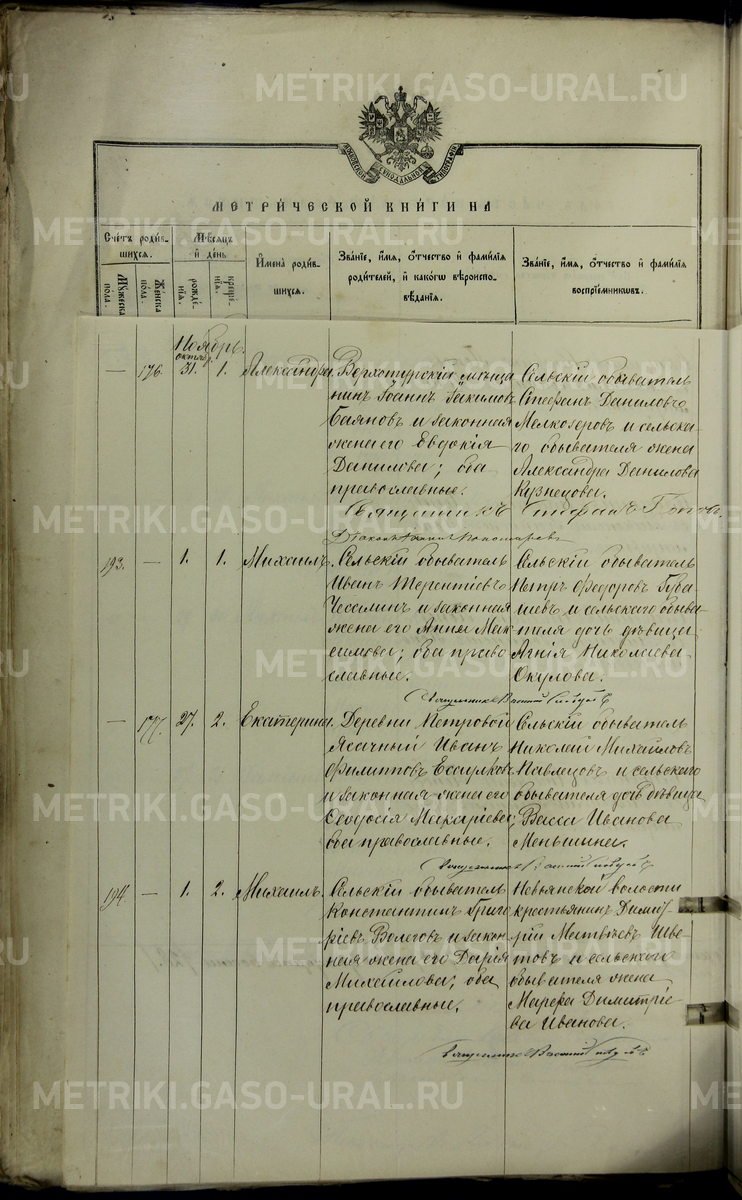 METRIKI.GASO-URAL.RU
МОСКОВСКОЙ СѴНОДАЛЬНОЙ ТИПОГРАФІИ
МЕТРИ́ЧЕСКОЙ КНИ́ГИ НА
Счетъ роди́в-
шихсѧ.
Мꙋ́жеска
по́ла.
Же́нска
по́ла.
Мѣ́сѧцъ
и҆ де́нь
рожде́-
нїѧ.
креще́-
нїѧ.
И҆мена̀ роди́в-
шихсѧ.
Зва́нїе, и҆́мѧ, ѻ҆́тчество и҆ фами́лїѧ
роди́телей, и҆ како́гѡ вѣроиспо-
вѣ́данїѧ.
Зва́нїе, и҆́мѧ, ѻ҆́тчество и҆ фами́лїѧ
воспрїе́мникѡвъ.
Ноябрь.
октябр.
— 176. 31. 1. Александра.
Верхотурскій мѣща-
нинъ Іоаннъ Іакимовъ
Баяновъ и законная
жена его Евдокія
Данилова; оба
православные.
Сельскій обыватель
Стефанъ Даниловъ
Мелкозеровъ и сельска-
го обывателя жена
Александра Данилова
Кузнецова.
Священникъ Стефанъ
Діаконъ Пономаревъ
193. — 1. 1. Михаилъ.
Сельскій обыватель
Иванъ Терентіевъ
и законная
жена его Анна Мак-
симова; оба право-
славные.
Сельскій обыватель
Петръ Федоровъ Гува-
шевъ и сельскаго обыва-
теля дочь дѣвица
Агнія Николаева
Окулова.
Священникъ Василій
— 177. 27. 2. Екатерина.
Деревни Петровой
Ясачный Иванъ
Филипповъ Есаулковъ
и законная жена его
Ѳеодосія Макаріева;
оба православные.
Сельскій обыватель
Николай Михайловъ
Павлецовъ и сельскаго
обывателя дочь дѣвица
Васса Иванова
Меньшина.
Священникъ Василій
194. — 1. 2. Михаилъ.
Сельскій обыватель
Константинъ Григо-
ріевъ Вологовъ и закон-
ная жена его Дарія
Михайлова; оба
православные.
Невьянской волости
крестьянинъ Дими-
рій Матвѣевъ Шве-
товъ и сельскаго
обывателя жена
Марѳа Димитріе-
ва Иванова.
Священникъ Василій